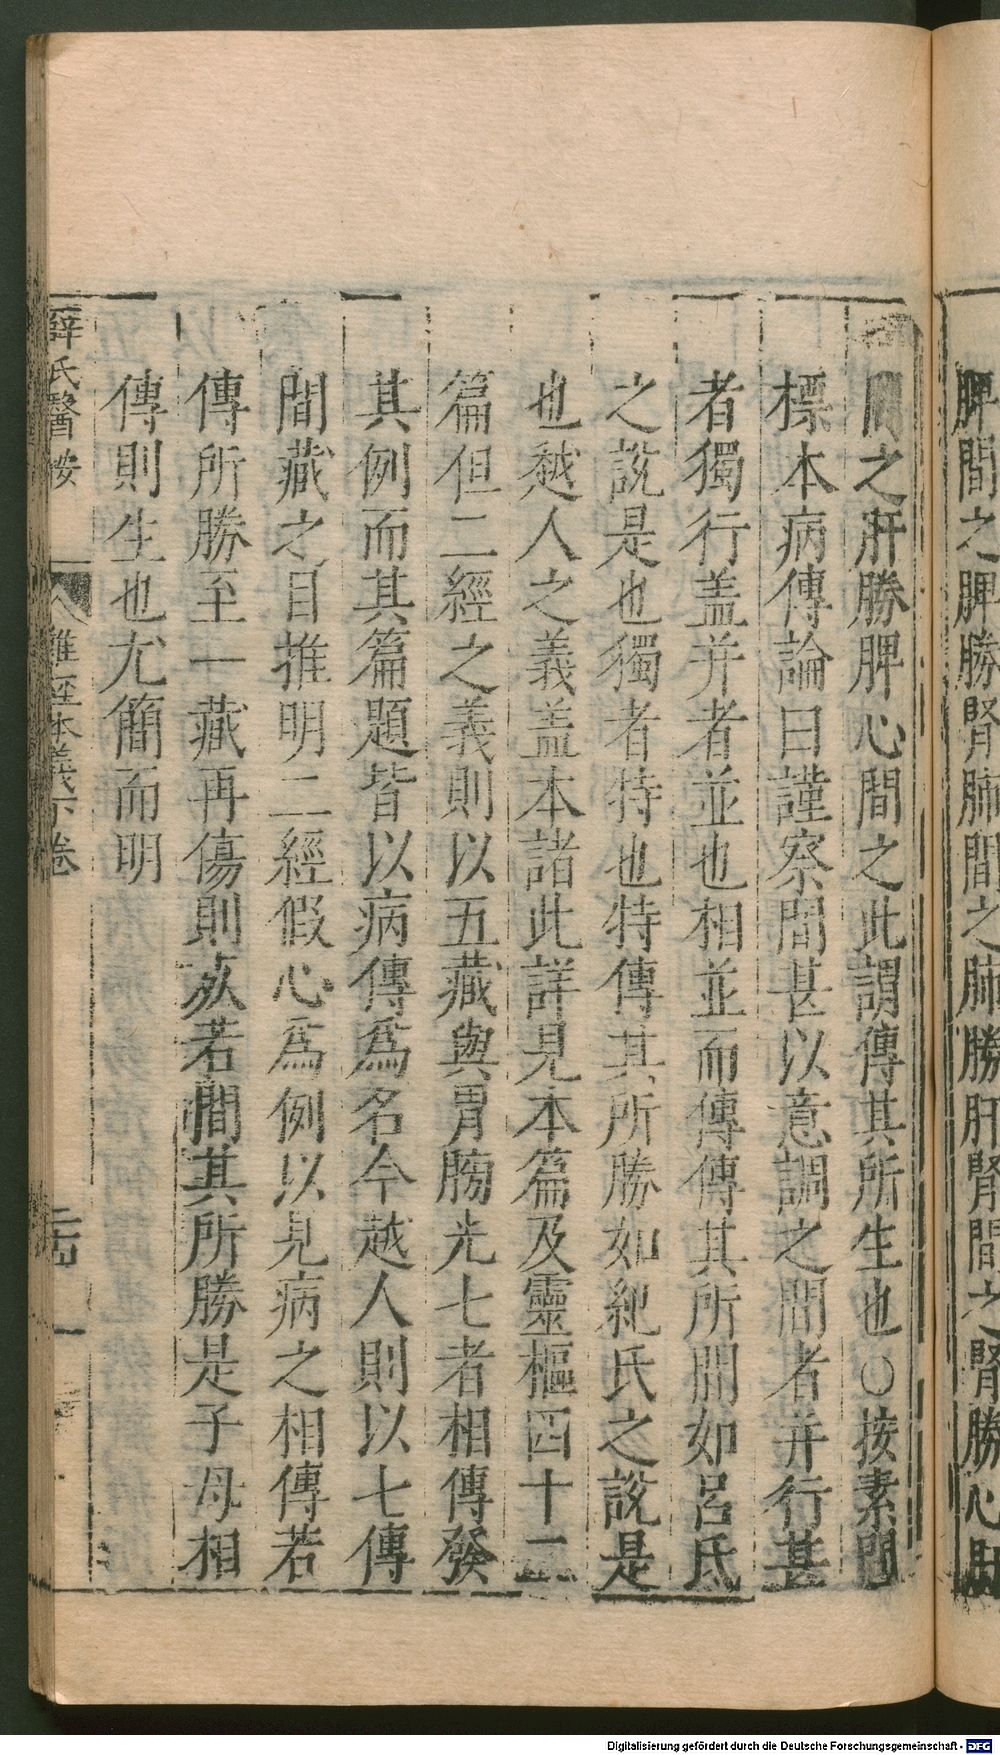 脾間之脾勝腎肺間之肺勝肝腎間之腎勝心肝
間之肝勝脾心間之此謂傳其所生也○按素問
標本病傳論曰謹察間甚以意調之間者并行甚
者獨行盖并者並也相並而傳傳其所間如呂氏
之說是也獨者特也特傳其所勝如紀氏之說是
也越人之義盖本諸此詳見本篇及靈樞四十二
篇但二經之義則以五藏與胃膀光七者相傳發
其例而其篇題皆以病傳爲名今越人則以七傳
間藏之目推明二經假心爲例以見病之相傳若
傳所勝至一藏再傷則死若間其所勝是子母相
傳則生也尤簡而明
薛氏醫按 難經本義下卷 二十四
Digitalisierung gefördert durch die Deutsche Forschungsgemeinschaft - DFG